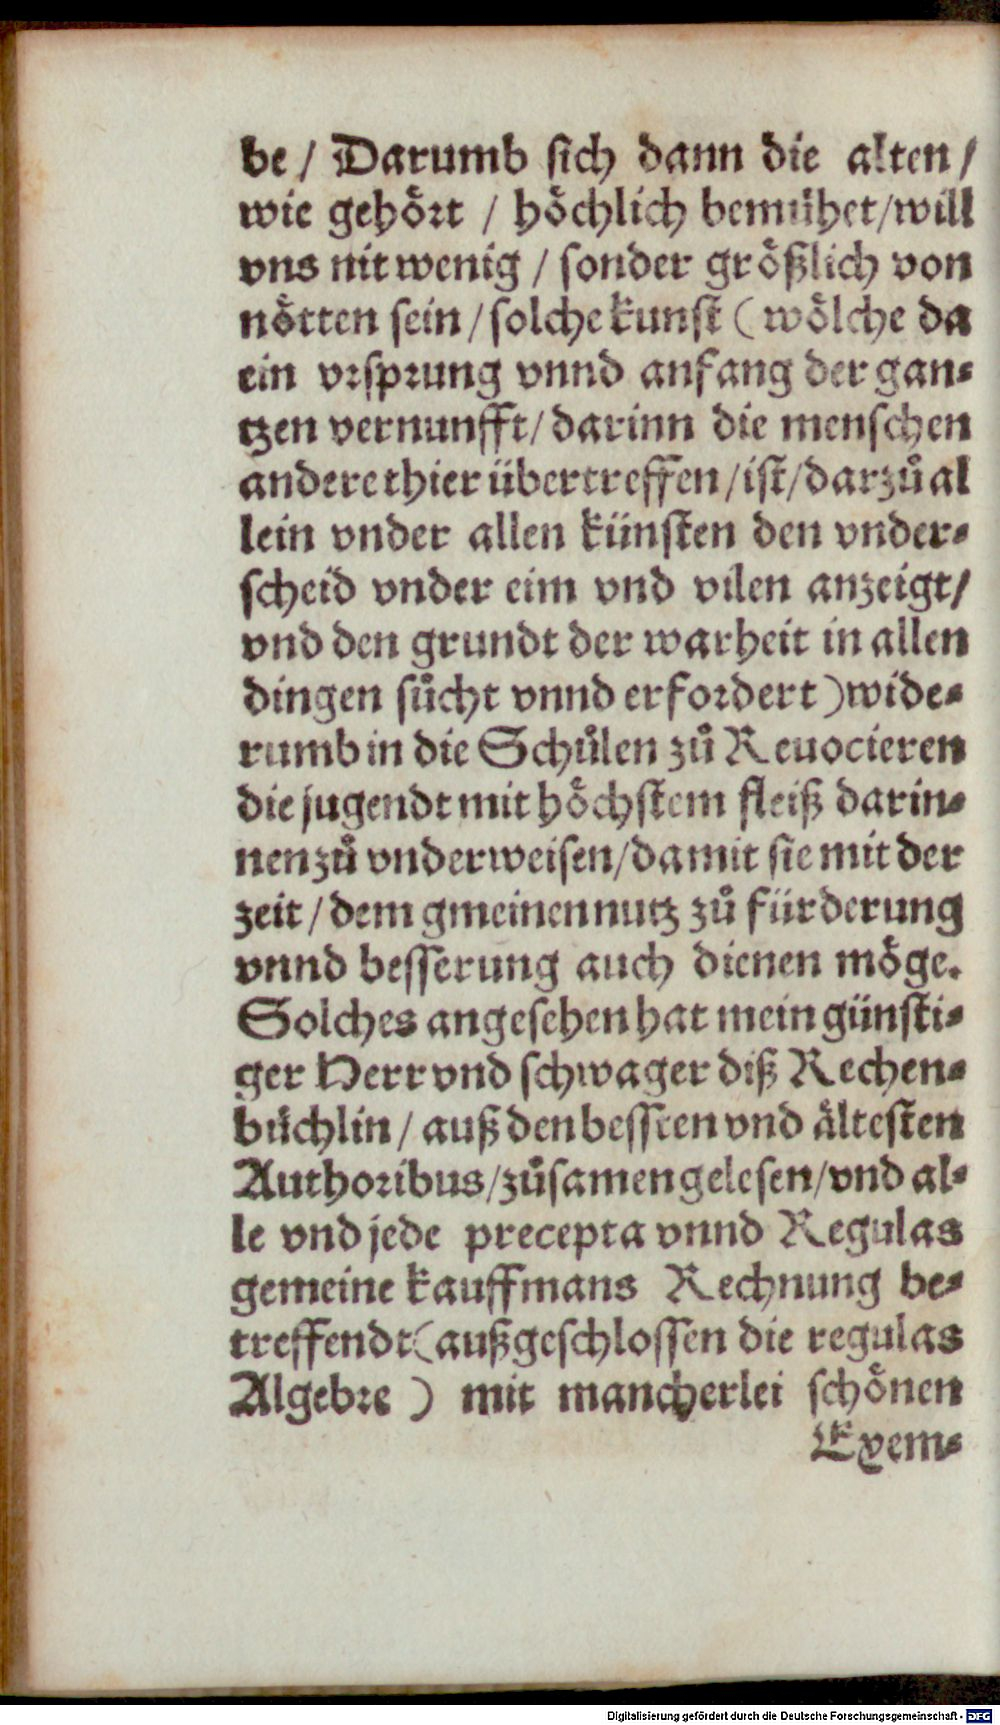 be / Darumb sich dann die alten /
wie gehoͤrt / hoͤchlich bemuͤhet / will
vns nit wenig / sonder groͤßlich von
noͤtten sein / solche kunst ( woͤlche da
ein vrsprung vnnd anfang der gan-
tzen vernunfft / darinn die menschen
andere thier übertreffen / ist / darzuͦ al
lein vnder allen künsten den vnder-
scheid vnder eim vnd vilen anzeigt /
vnd den grundt der warheit in allen
dingen suͦcht vnnd erfordert ) wide-
rumb in die Schuͦlen zuͦ Reuocieren
die jugendt mit hoͤchstem fleiß darin-
nen zuͦ vnderweisen / damit sie mit der
zeit / dem gmeinen nutz zuͦ fürderung
vnnd besserung auch dienen moͤge.
Solches angesehen hat mein günsti-
ger Herr vnd schwager diß Rechen-
buͤchlin / auß den bessten vnd aͤltesten
Authoribus / zuͦsamen gelesen / vnd al-
le vnd jede precepta vnnd Regulas
gemeine kauffmans Rechnung be-
treffendt ( außgeschlossen die regulas
Algebre ) mit mancherlei schoͤnen
Exem-
Digitalisierung gefördert durch die Deutsche Forschungsgemeinschaft - DFG